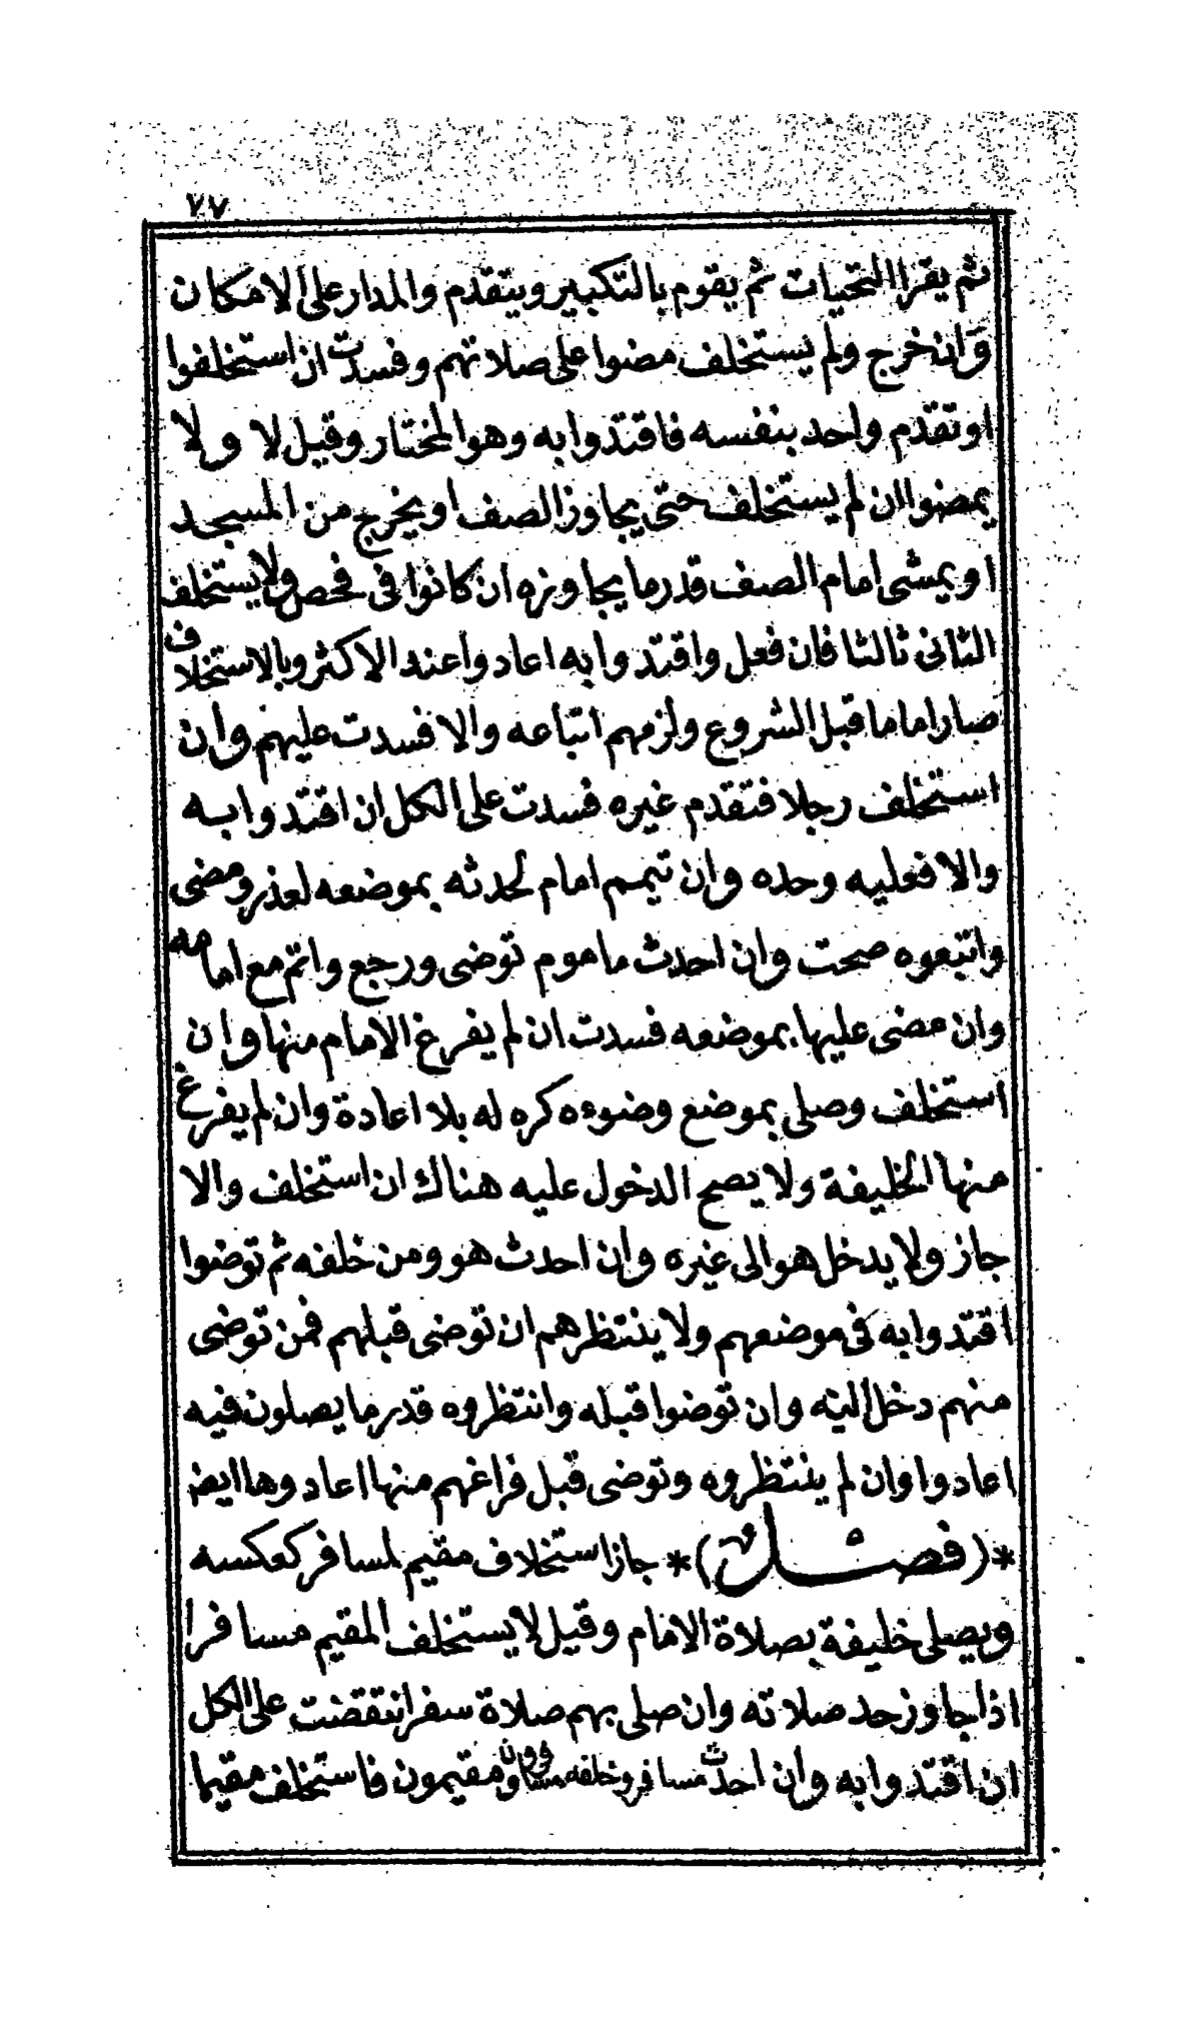 ٧٧
ثم يقرا التحيات ثم يقوم بالتكبير ويتقدم والمدار على الامكان
وان خرج ولم يستخلف مضوا على صلاتهم وفسدت ان استخلفوا
او تقدم واحد بنفسه فاقتدوا به وهو المختار وقيل لا ولا
يمضوا ان لم يستخلف حتى يجاوز الصف او يخرج من المسجد
او يمشى امام الصف قدر ما يجاوزه ان كانوا فى فحص ولا يستخلف
الثانى ثالثا فان فعل واقتدوا به اعادوا عند الاكثر وبالاستخلاف
صار اماما قبل الشروع ولزمهم اتباعه والا فسدت عليهم وان
استخلف رجلا فتقدم غيره فسدت على الكل ان اقتدوا به
والا فعليه وحده وان تيمم امام لحدثه بموضعه لعذر ومضى
واتبعوه صحت وان احدث ماموم توضى ورجع واتم مع امامه
وان مضى عليها بموضعه فسدت ان لم يفرغ الامام منها وان
استخلف وصلى بموضع وضوءه كره له بلا اعادة وان لم يفرغ
منها الخليفة ولا يصح الدخول عليه هناك ان استخلف والا
جاز ولا يدخل هو الى غيره وان احدث هو ومن خلفه ثم توضوا
اقتدوا به فى موضعهم ولا ينتظرهم ان توضى قبلهم فمن توضى
منهم دخل اليه وان توضوا قبله وانتظروه قدر ما يصلون فيه
اعادوا وان لم ينتظروه وتوضى قبل فراغهم منها اعادوها ايضا
*(فصل)* جاز استخلاف مقيم لمسافر كعكسه
ويصلى خليفة بصلاة الامام وقيل لا يستخلف المقيم مسافرا
اذا جاوز حد صلاته وان صلى بهم صلاة سفر انتقضت على الكل
ان اقتدوا به وان احدث مسافر وخلفه مسافرون ومقيمون فاستخلف مقيما